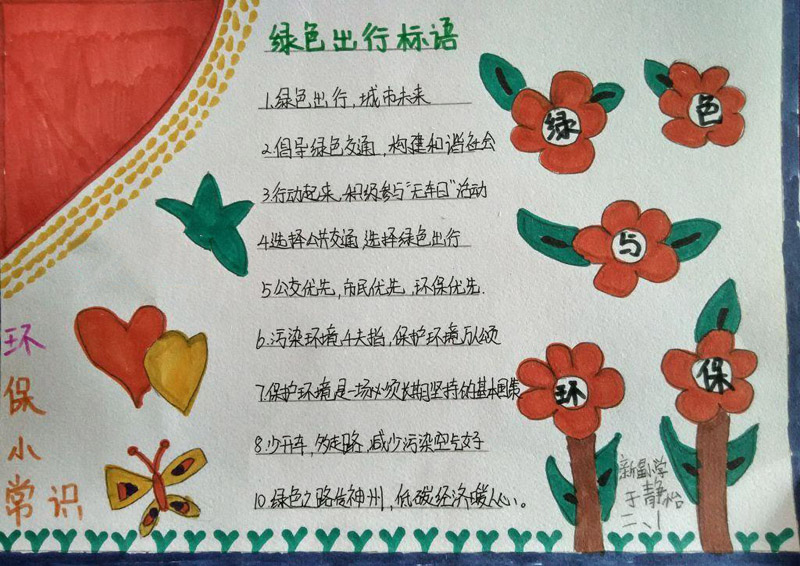 绿色出行标语
1.绿色出行,城市未来
2.倡导绿色交通,构建和谐社会
3.行动起来,积极参与“无车日”活动
4.选择公共交通 选择绿色出行
5公交优先,市民优先.环保优先.
6.污染环境千夫指,保护环境万人颂
7.保护环境是一场必须长期坚持的基本国策
8.少开车,多走路 减少污染空气好
10.绿色之路传神州,低碳经济暖人心。
绿
色
与
环
保
环
保
小
常识
新疆小学
于静怡
二、1